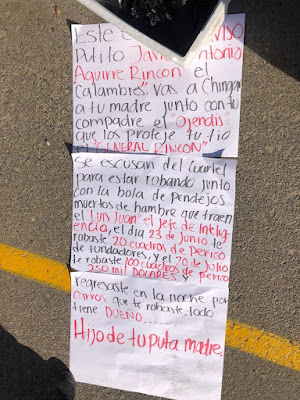 Este VISO
Putito Antonio
Aguirre Rincon el
Calambres". vas a Chingar
a tu madre junto con tu
compadre el "Ojendis"
que los proteje tu tio
el "GENERAL RINCON"
Se escusan del Cuartel
para estar robando junto
con la bola de pendejos
muertos de hambre que traen
el "Luis Juan" el Jefe de Intelig
encia, el dia 23 de Junio te
robaste 20 cuadros de perico
de fundadores, y el 20 de Julio
te robaste 100 cuadros de perico
y 250 mil DOLARES y
regresaste en la noche por
carros que te robaste, todo
tiene DUEÑO....
Hijo de tu puta madre.